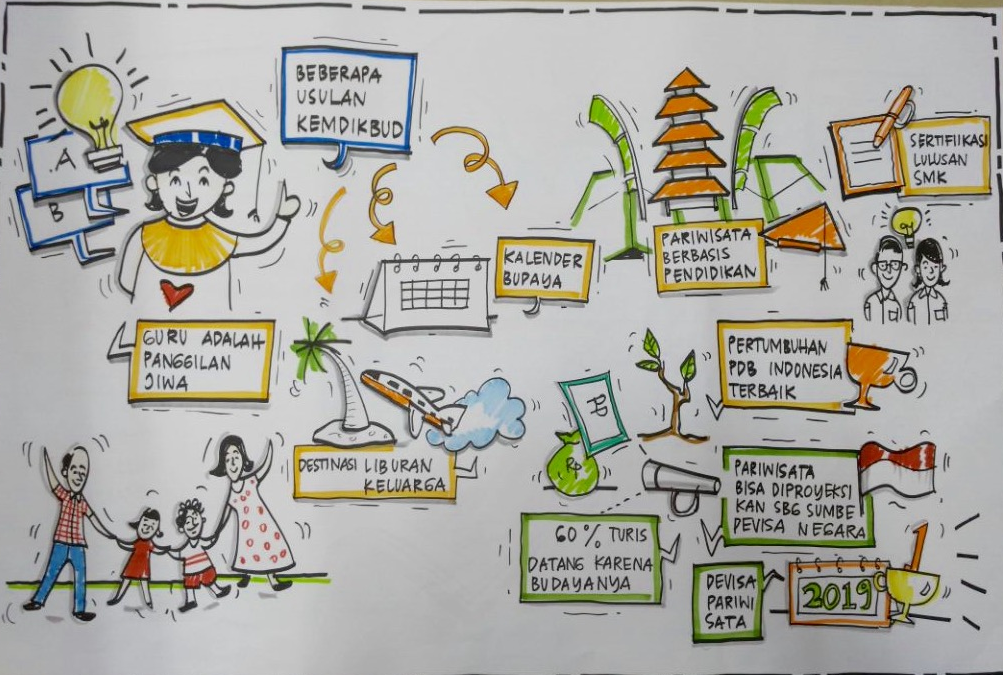 A
B
BEBERAPA
USULAN
KEMDIKBUD
SERTIFIIKASI
LULUSAN
SMK
KALENDER
BUPAYA
PARIWISATA
BERBASIS
PENDIDIKAN
GURU ADALAH
PANGGILAN
JIWA
DESTINASI LIBURAN
KELUARGA
PERTUMBUHAN
PDB INDONESIA
TERBAIK
RP
Rp
PARIWISATA
BISA DIPROYEKSI
KAN SBG SUMBE
DEVISA NEGARA
60% TURIS
DATANG KARENA
BUDAYANYA
DEVISA
PARIWI
SATA
2019
1